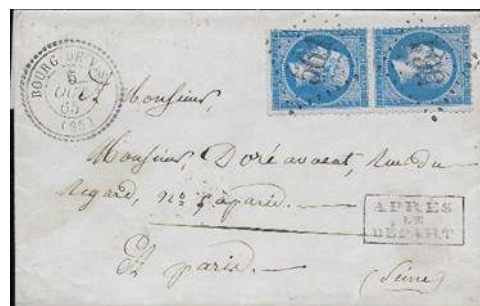 BOURG-DE-V
6
OCT
65
(25)
562
562
A Monsieur,
Monsieur, Doré avocat, Rue du
Regard, n° 5 à paris.
APRES
LE
DÉPART
A paris.
(Seine)